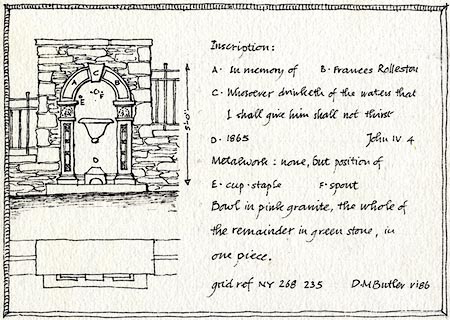 A C B
E F
D
5'-0"
Inscription:
A. In memory of B. Frances Rolleston
C. Whosoever drinketh of the water that
I shall give him shall not thirst
D. 1865 John IV 4
Metalwork: none, but position of
E. cup-staple F. spout
Bowl in pink granite, the whole of
the remainder in green stone, in
one piece.
grid ref NY 268 235 D.M Butler vi86